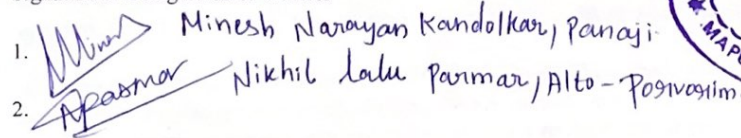 1. Minesh Narayan Kandolkar, Panaji
2. Nikhil Lalu Parmar, Alto-Porvorim
MAPU